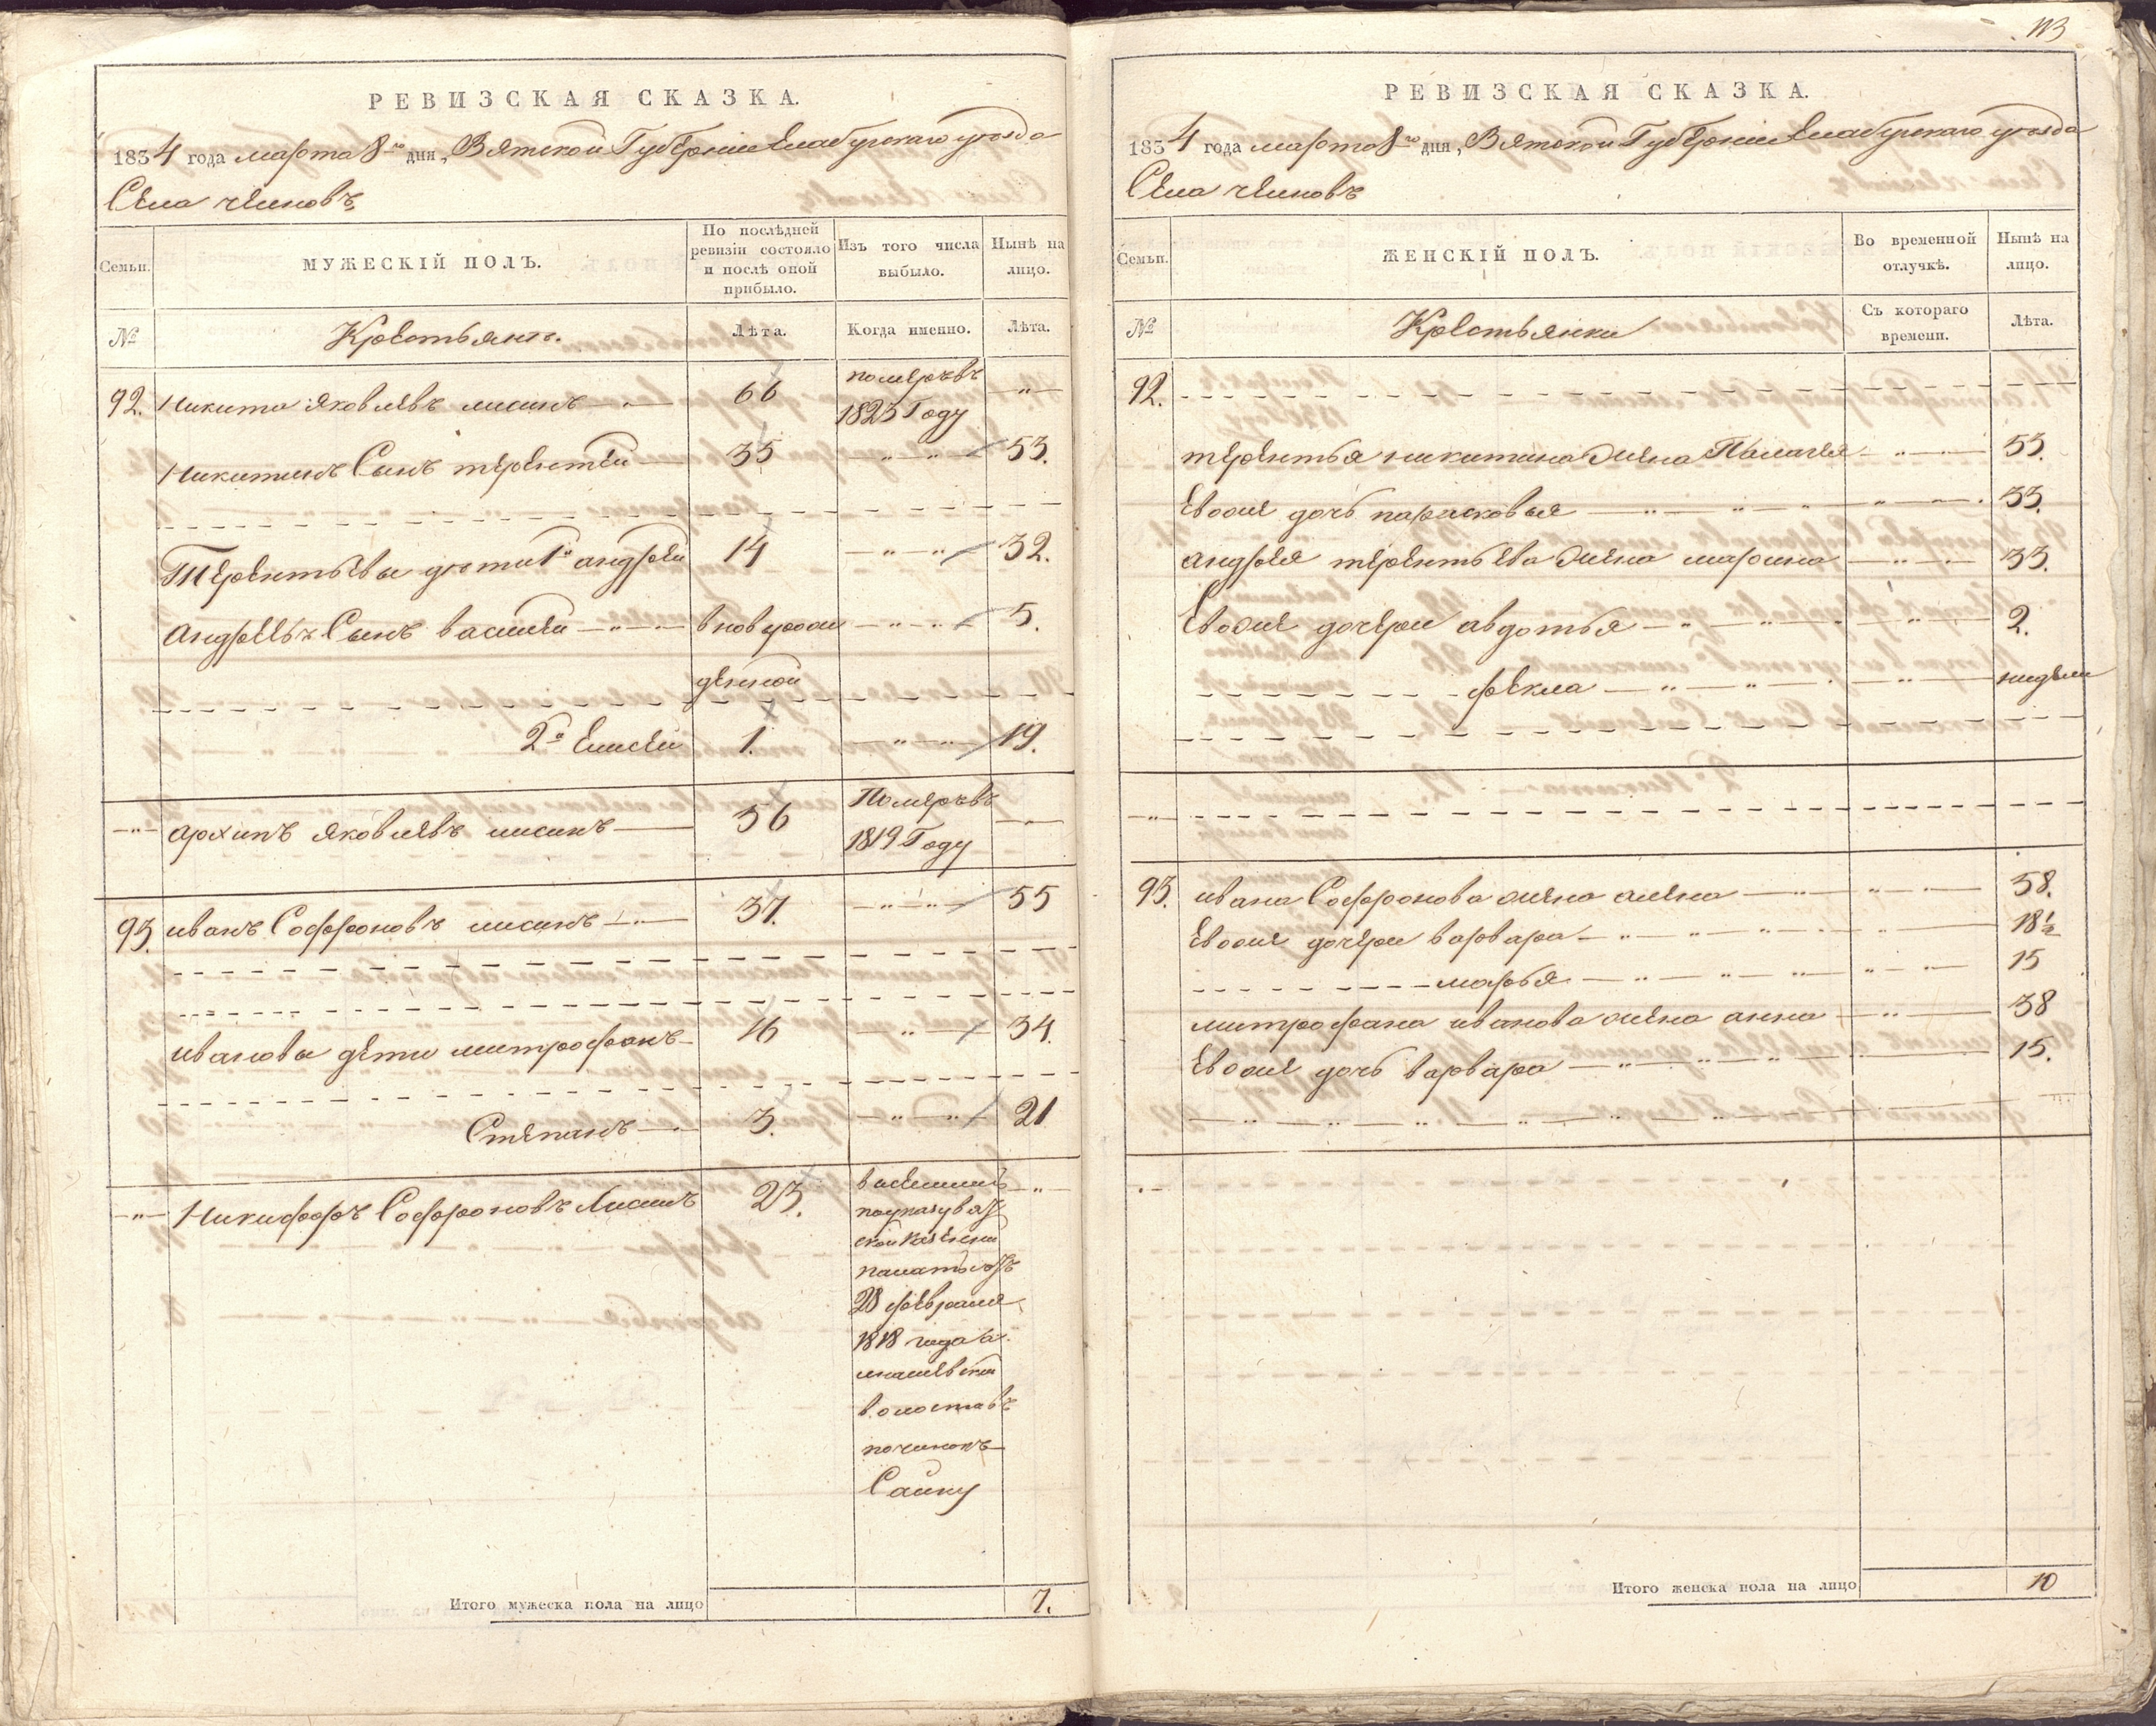 РЕВИЗСКАЯ СКАЗКА.
1834 года марта 8го дня, Вятской Губерніи Елабужскаго уѣзда
Села челновъ
Семьи.
МУЖЕСКІЙ ПОЛЪ.
По послѣдней ревизіи состояло и послѣ оной прибыло.
Изъ того числа выбыло.
Нынѣ на лицо.
№
Крестьянъ.
Лѣта.
Когда именно.
Лѣта.
92. Никита Яковлевъ лисинъ 66 померъ въ 1825 Году
Никитинъ Сынъ терентей 35 53.
Терентьевы дѣти 1й андрей 14 32.
Андреевъ Сынъ василей вновурож 5.
денной
2й Елисей 1. 19.
архипъ яковлевъ лисинъ 56 Померъ въ 1819 Году
93. иванъ Софроновъ лисинъ 37. 55
ивановы дети митрофанъ 16 34.
Степанъ 3. 21
Никифоръ Софроновъ Лисинъ 23.
поуказу вят
ской казенной
палаты отъ
28 февраля
1818 года
волость въ
починокъ
Итого мужеска пола на лицо 7.
113
РЕВИЗСКАЯ СКАЗКА.
1834 года марта 8го дня, Вятской Губерніи Елабужскаго уѣзда
Села челновъ
Семьи.
ЖЕНСКІЙ ПОЛЪ.
Во временной отлучкѣ.
Нынѣ на лицо.
№
Крестьянки
Съ котораго времени.
Лѣта.
92.
терентья никитина жена Палагея 53.
Евоже дочь парасковья 33.
андрея терентьева жена марина 33.
Евоже дочери авдотья 2.
фекла нидели
93. ивана Софронова жена алена 58.
Евоже дочери варвара 18½
марья 15
митрофана иванова жена анна 38
Евоже дочь варвара 15.
Итого женска пола на лицо 10